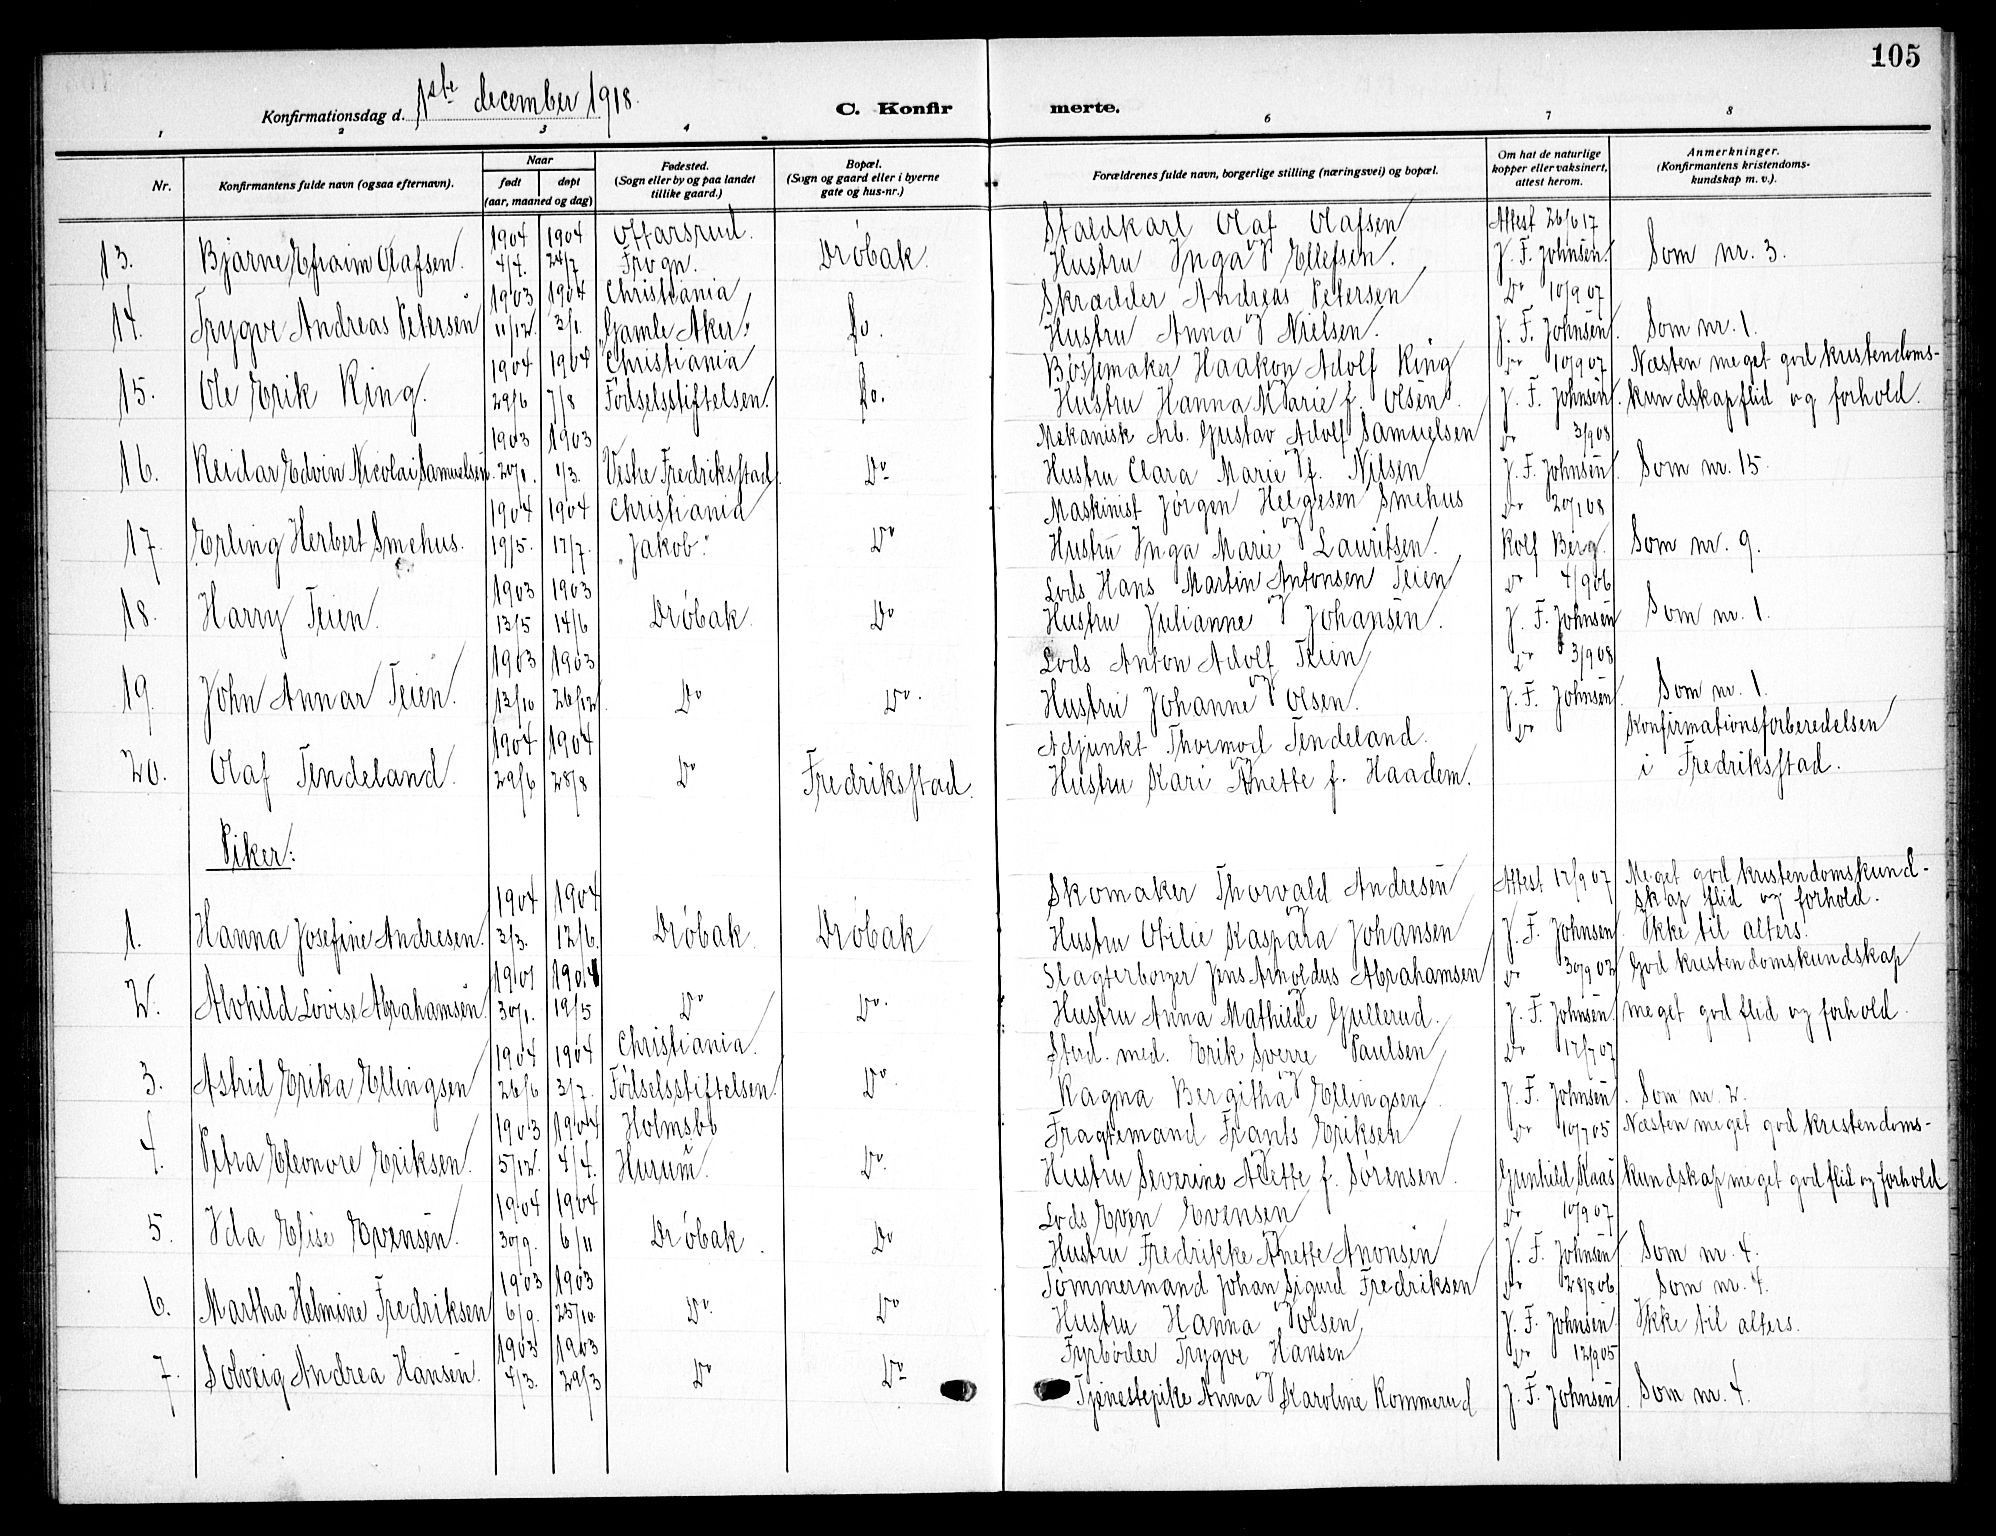 105
Konfirmationsdag d. 1ste december 1918.
C. Konfirmerte.
1 2 3 4 6 7 8
Nr.
Konfirmantens fulde navn (ogsaa efternavn).
Naar
født
døpt
(aar, maaned og dag)
Fødested.
(Sogn eller by og paa landet
tillike gaard.)
Bopæl.
(Sogn og gaard eller i byerne
gate og hus-nr.)
Forældrenes fulde navn, borgerlige stilling (næringsvei) og bopæl.
Om hat de naturlige
kopper eller vaksinert,
attest herom.
Anmerkninger.
(Konfirmantens kristendoms-
kundskap m. v.).
1904 1904 Ottarsrud. Staldkarl Olaf Olafsen Attest 26/6 17
13. Bjarne Efraim Olafsen. 4/4. 24/7 Frogn. Drøbak. Hustru Inga Ellefsen. J. F. Johnsen. Som nr. 3.
1903 1904 Christiania Skrædder Andreas Petersen Do 10/9 07
14. Trygve Andreas Petersen 11/12. 3/1. "Gamle Aker." Do. Hustru Anna Nielsen. J. F. Johnsen. Som nr. 1.
1904 1904 Christiania Bøssemaker Haakon Adolf Ring Do 10/9 07 Næsten meget god kristendoms-
15. Ole Erik Ring. 29/6 7/8 Fødselsstiftelsen. Do. Hustru Hanna Marie f. Olsen. J. F. Johnsen. kundskap flid og forhold.
1903 1903 Mekanisk Arb. Gustav Adolf Samuelsen Do 3/9 08
16. Reidar Edvin Nicolai Samuelsen. 20/1. 1/3. Vestre Fredriksstad. Do Hustru Clara Marie f. Nilsen J. F. Johnsen. Som nr. 15.
1904 1904 Christiania Maskinist Jørgen Helgesen Smehus Do 20/1 08
17. Erling Herbert Smehus. 19/5. 17/7. "Jakob." Do Hustru Inga Marie Lauritsen. Rolf Berg. Som nr. 9.
1903 1903 Lods Hans Martin Antonsen Teien Do 4/9 06
18. Harry Teien. 13/5 14/6 Drøbak. Do Hustru Julianne Johansen. J. F. Johnsen Som nr. 1.
1903 1903 Lods Anton Adolf Teien Do 3/9 08
19. John Annar Teien. 13/10 26/12. Do Do. Hustru Johanne Olsen. J. F. Johnsen. Som nr. 1.
1904 1904 Adjunkt Thormod Tendeland. Do Konfirmationsforberedelsen
20. Olaf Tendeland. 29/6 28/8 Do Fredriksstad. Hustru Kari Anette f. Haadem. i Fredriksstad.
Piker:
1904 1904 Skomaker Thorvald Andresen Attest 17/9 07 Meget god kristendomskund-
skap flid og forhold.
1. Hanna Josefine Andresen. 3/3. 12/6. Drøbak. Drøbak Hustru Otilie Kaspara Johansen J. F. Johnsen. Ikke til alters.
1901 1904 Slagterborger Jens Arnoldus Abrahamsen Do 30/9 02 God kristendomskundskap
2. Alvhild Lovise Abrahamsen. 30/1. 19/5 Do Do. Hustru Anna Mathilde Gullerud. J. F. Johnsen. meget god flid og forhold.
1904 1904 Christiania. Stud. med. Erik Sverre Paulsen Do 17/7 07
3. Astrid Erika Ellingsen 26/6 3/7. Fødselsstiftelsen. Do. Ragna Bergitha Ellingsen. J. F. Johnsen. Som nr. 2.
1903 1904 Holmsbo Fragtemand Frants Eriksen Do 10/7 05 Næsten meget god kristendoms-
4. Petra Eleonore Eriksen. 5/12. 4/4. Hurum. Do. Hustru Severine Alette f. Sørensen. Gunhild Kaas kundskap meget god flid og forhold
1904 1904 Lods Even Evensen Do 10/9 07
5. Ida Elise Evensen. 30/9. 6/11 Drøbak. Do Hustru Fredrikke Anette Anonsen J. F. Johnsen Som nr. 4.
1903 1903 Tømmermand Johan Sigurd Fredriksen Do 28/8 06 Som nr. 4.
6. Martha Helmine Fredriksen 6/9. 25/10. Do. Do Hustru Hanna Olsen. J. F. Johnsen Ikke til alters.
1903 1903 Fyrbøder Trygve Hansen Do 12/9 05
7. Solveig Andrea Hansen. 4/3. 29/3 Do Do Tjenestepike Anna Karoline Kommerud J. F. Johnsen. Som nr. 4.